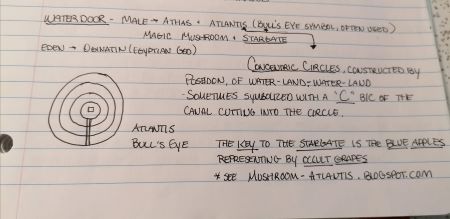 WATER DOOR - MALE → ATHAS + ATLANTIS (BULL'S EYE SYMBOL, OFTEN USED)
MAGIC MUSHROOM + STARGATE
EDEN → (EGYPTIAN GOD)
CONCENTRIC CIRCLES, CONSTRUCTED BY
POSEIDON, OF WATER-LAND, WATER-LAND
- SOMETIMES SYMBOLIZED WITH A "C" B/C OF THE
CANAL CUTTING INTO THE CIRCLE.
ATLANTIS
BULL'S EYE
THE KEY TO THE STARGATE IS THE BLUE APPLES
REPRESENTING BY OCCULT GRAPES
* SEE MUSHROOM-ATLANTIS.BLOGSPOT.COM